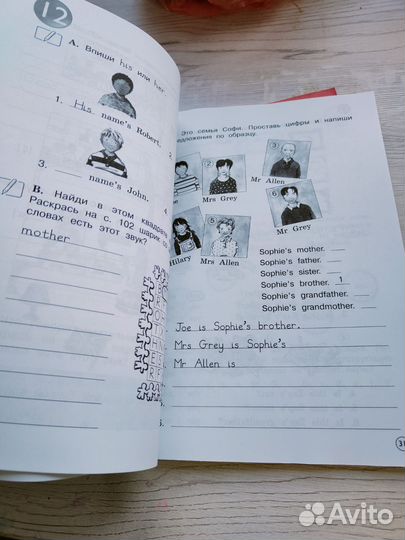 12
А. Впиши his или her.
1. His name's Robert. 2
3. name's John. 4
В. Найди в этом квадрате
Раскрась на с. 102 шарик со
словах есть этот звук?
mother
BROTHER
Это семья Софи. Проставь цифры и напиши
предложения по образцу.
2
3
Mrs Grey
Mr Allen
5
6
Hilary
Mrs Allen
Mr Grey
Sophie's mother.
Sophie's father.
Sophie's sister.
Sophie's brother. 1
Sophie's grandfather.
Sophie's grandmother.
Joe is Sophie's brother.
Mrs Grey is Sophie's
Mr Allen is
Avito